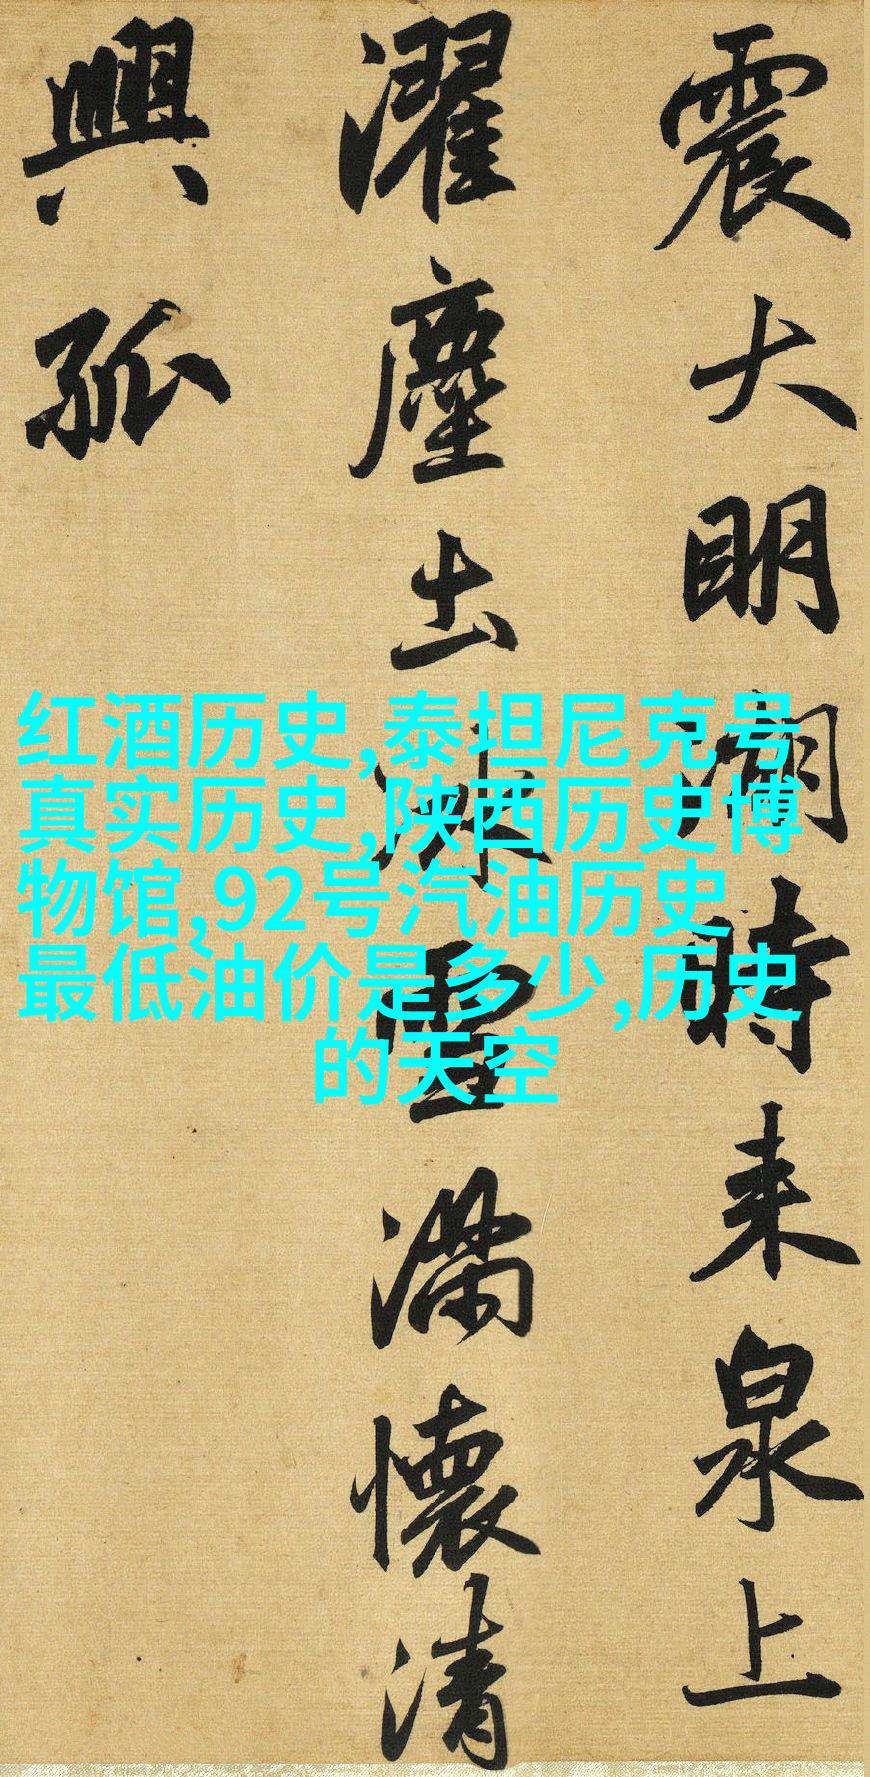 震大明湖時来泉上
濯塵出冰雪滿懷清
興孤
红酒历史,泰坦尼克号
真实历史,陕西历史博
物馆,92号汽油历史
最低油价是多少,历史
的天空